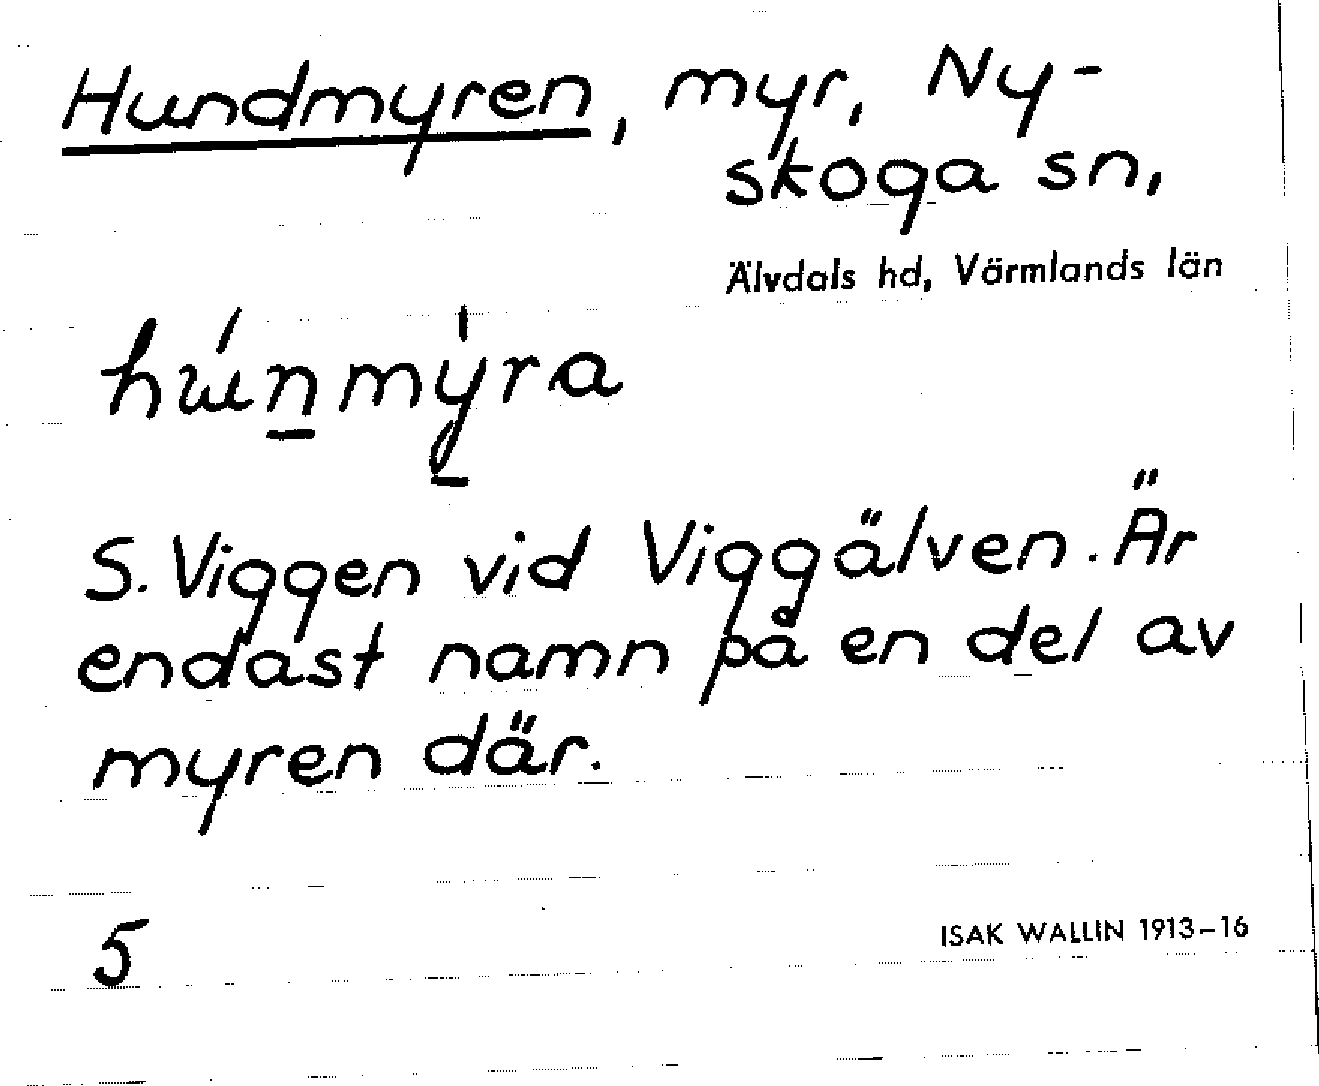 Hundmyren, myr, Ny-
skoga sn,
Älvdals hd, Värmlands län
hu̇́n̲mẏ̲ra
S. Viggen vid Viggälven. Är
endast namn på en del av
myren där.
5
ISAK WALLIN 1913–16